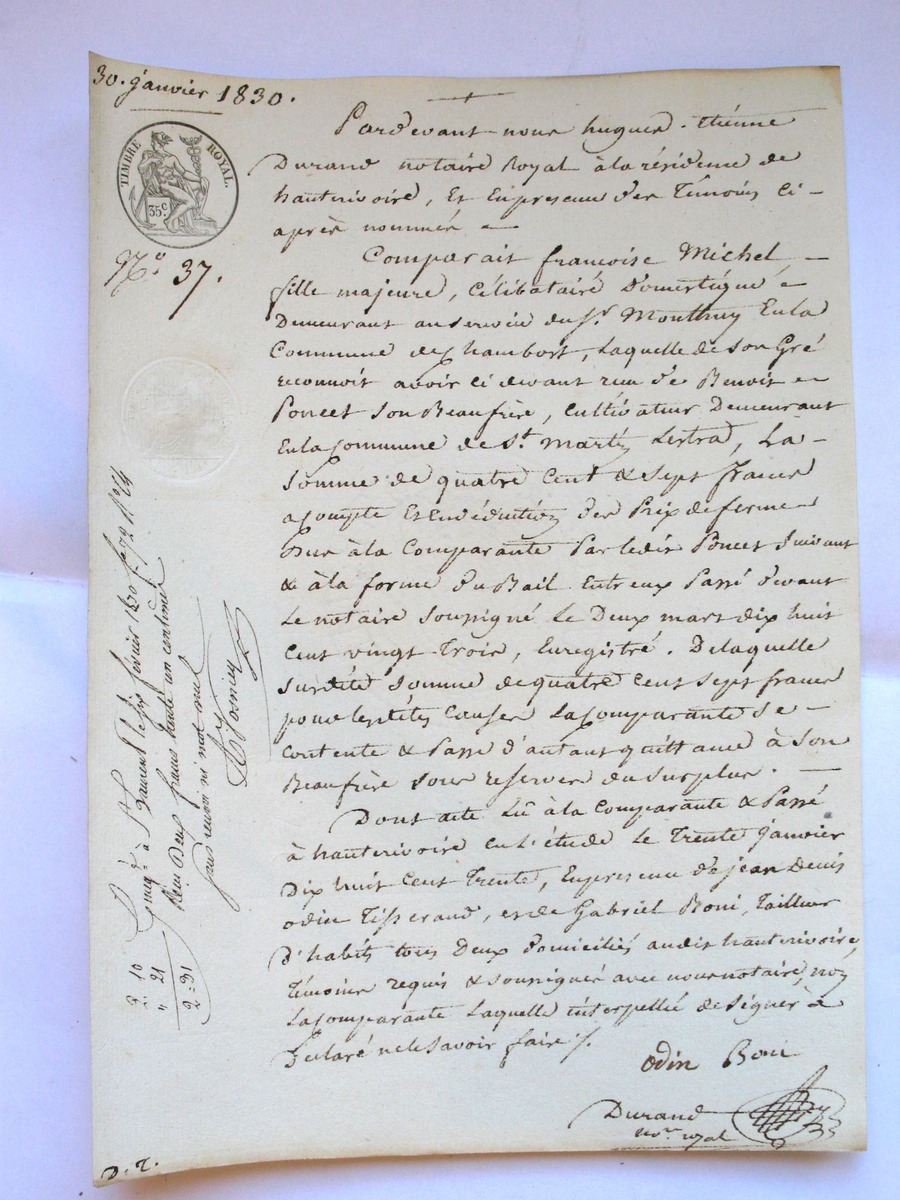 30. janvier 1830.
TIMBRE ROYAL.
35 c.
N.o 37.
Pardevant nous hugues - étienne
Durand notaire Royal à la résidence de
hauterivoire, Et En presence des Témoins ci -
après nommés -
Comparait francoise Michel, -
fille majeure, Célibataire Domestique -
Demeurant au service du Sr. Monthuy En la
Commune de Chambost, Laquelle de son Gré
reconnoit avoir ci devant reçu de Benoit -
Poncet son Beaufrère, Cultivateur Demeurant
En la Commune de St. Martin Lestrad, La -
Somme de quatre Cent & sept francs
a compte Et En déduction des Prix de ferme
Dus à la Comparante Par ledit Poncet suivant
& à la forme du Bail Entre eux Passé devant
Le notaire soussigné Le Deux mars dix huit
Cent vingt Trois, Enregistré. De laquelle
susdite somme de quatre Cent sept francs
pour lesdites Causes La Comparante se -
Contente & Passe d'autant quittance à son
Beaufrère sous reserves du surplus. -
Dont acte Lû à la Comparante & Passé
à hauterivoire en L'étude Le Trente janvier
Dix huit Cent Trente, En presence de jean Denis
odin Tisserand, et de Gabriel Boni, Tailleur
D'habits tous Deux domiciliés audit hauterivoire,
Témoins requis & soussignés avec nous notaire, non
La Comparante Laquelle interpellée de signer à
Déclaré ne le savoir faire /.
odin Boni
Durand
not.re royal
D. T.
Enreg.é à St Laurent le six février 1830 fo 79 Ro C4
Reçu Deux francs trente un centimes
sans renvoi ni mot nul
2. 10
" 21
2 = 31